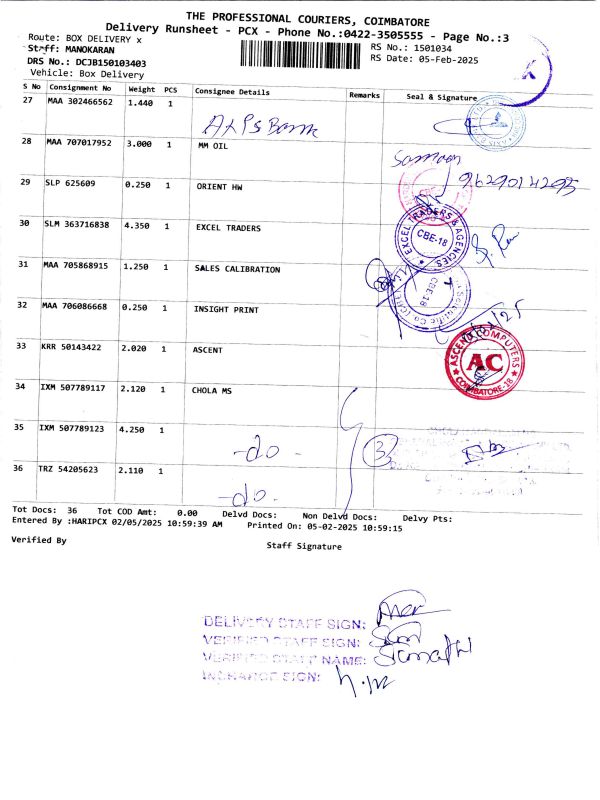 THE PROFESSIONAL COURIERS, COIMBATORE
Delivery Runsheet - PCX - Phone No.:0422-3505555 - Page No.:3
Route: BOX DELIVERY x
RS No.: 1501034
Staff: MANOKARAN
RS Date: 05-Feb-2025
DRS No.: DCJB150103403
Vehicle: Box Delivery
S No Consignment No Weight PCS Consignee Details Remarks Seal & Signature
27 MAA 302466562 1.440 1
28 MAA 707017952 3.000 1 MM OIL
9629014295
29 SLP 625609 0.250 1 ORIENT HW
30 SLM 363716838 4.350 1 EXCEL TRADERS
EXCEL TRADERS & AGENCIES
CBE-18
31 MAA 705868915 1.250 1 SALES CALIBRATION
CBE-18
32 MAA 706086668 0.250 1 INSIGHT PRINT
33 KRR 50143422 2.020 1 ASCENT
ASCEND COMPUTERS
AC
COIMBATORE-18
34 IXM 507789117 2.120 1 CHOLA MS
35 IXM 507789123 4.250 1 -do- 3
36 TRZ 54205623 2.110 1 -do-
Tot Docs: 36 Tot COD Amt: 0.00 Delvd Docs: Non Delvd Docs: Delvy Pts:
Entered By :HARIPCX 02/05/2025 10:59:39 AM Printed On: 05-02-2025 10:59:15
Verified By
Staff Signature
DELIVERY STAFF SIGN:
VERIFIED STAFF SIGN:
VERIFIED STAFF NAME:
INCHARGE SIGN: